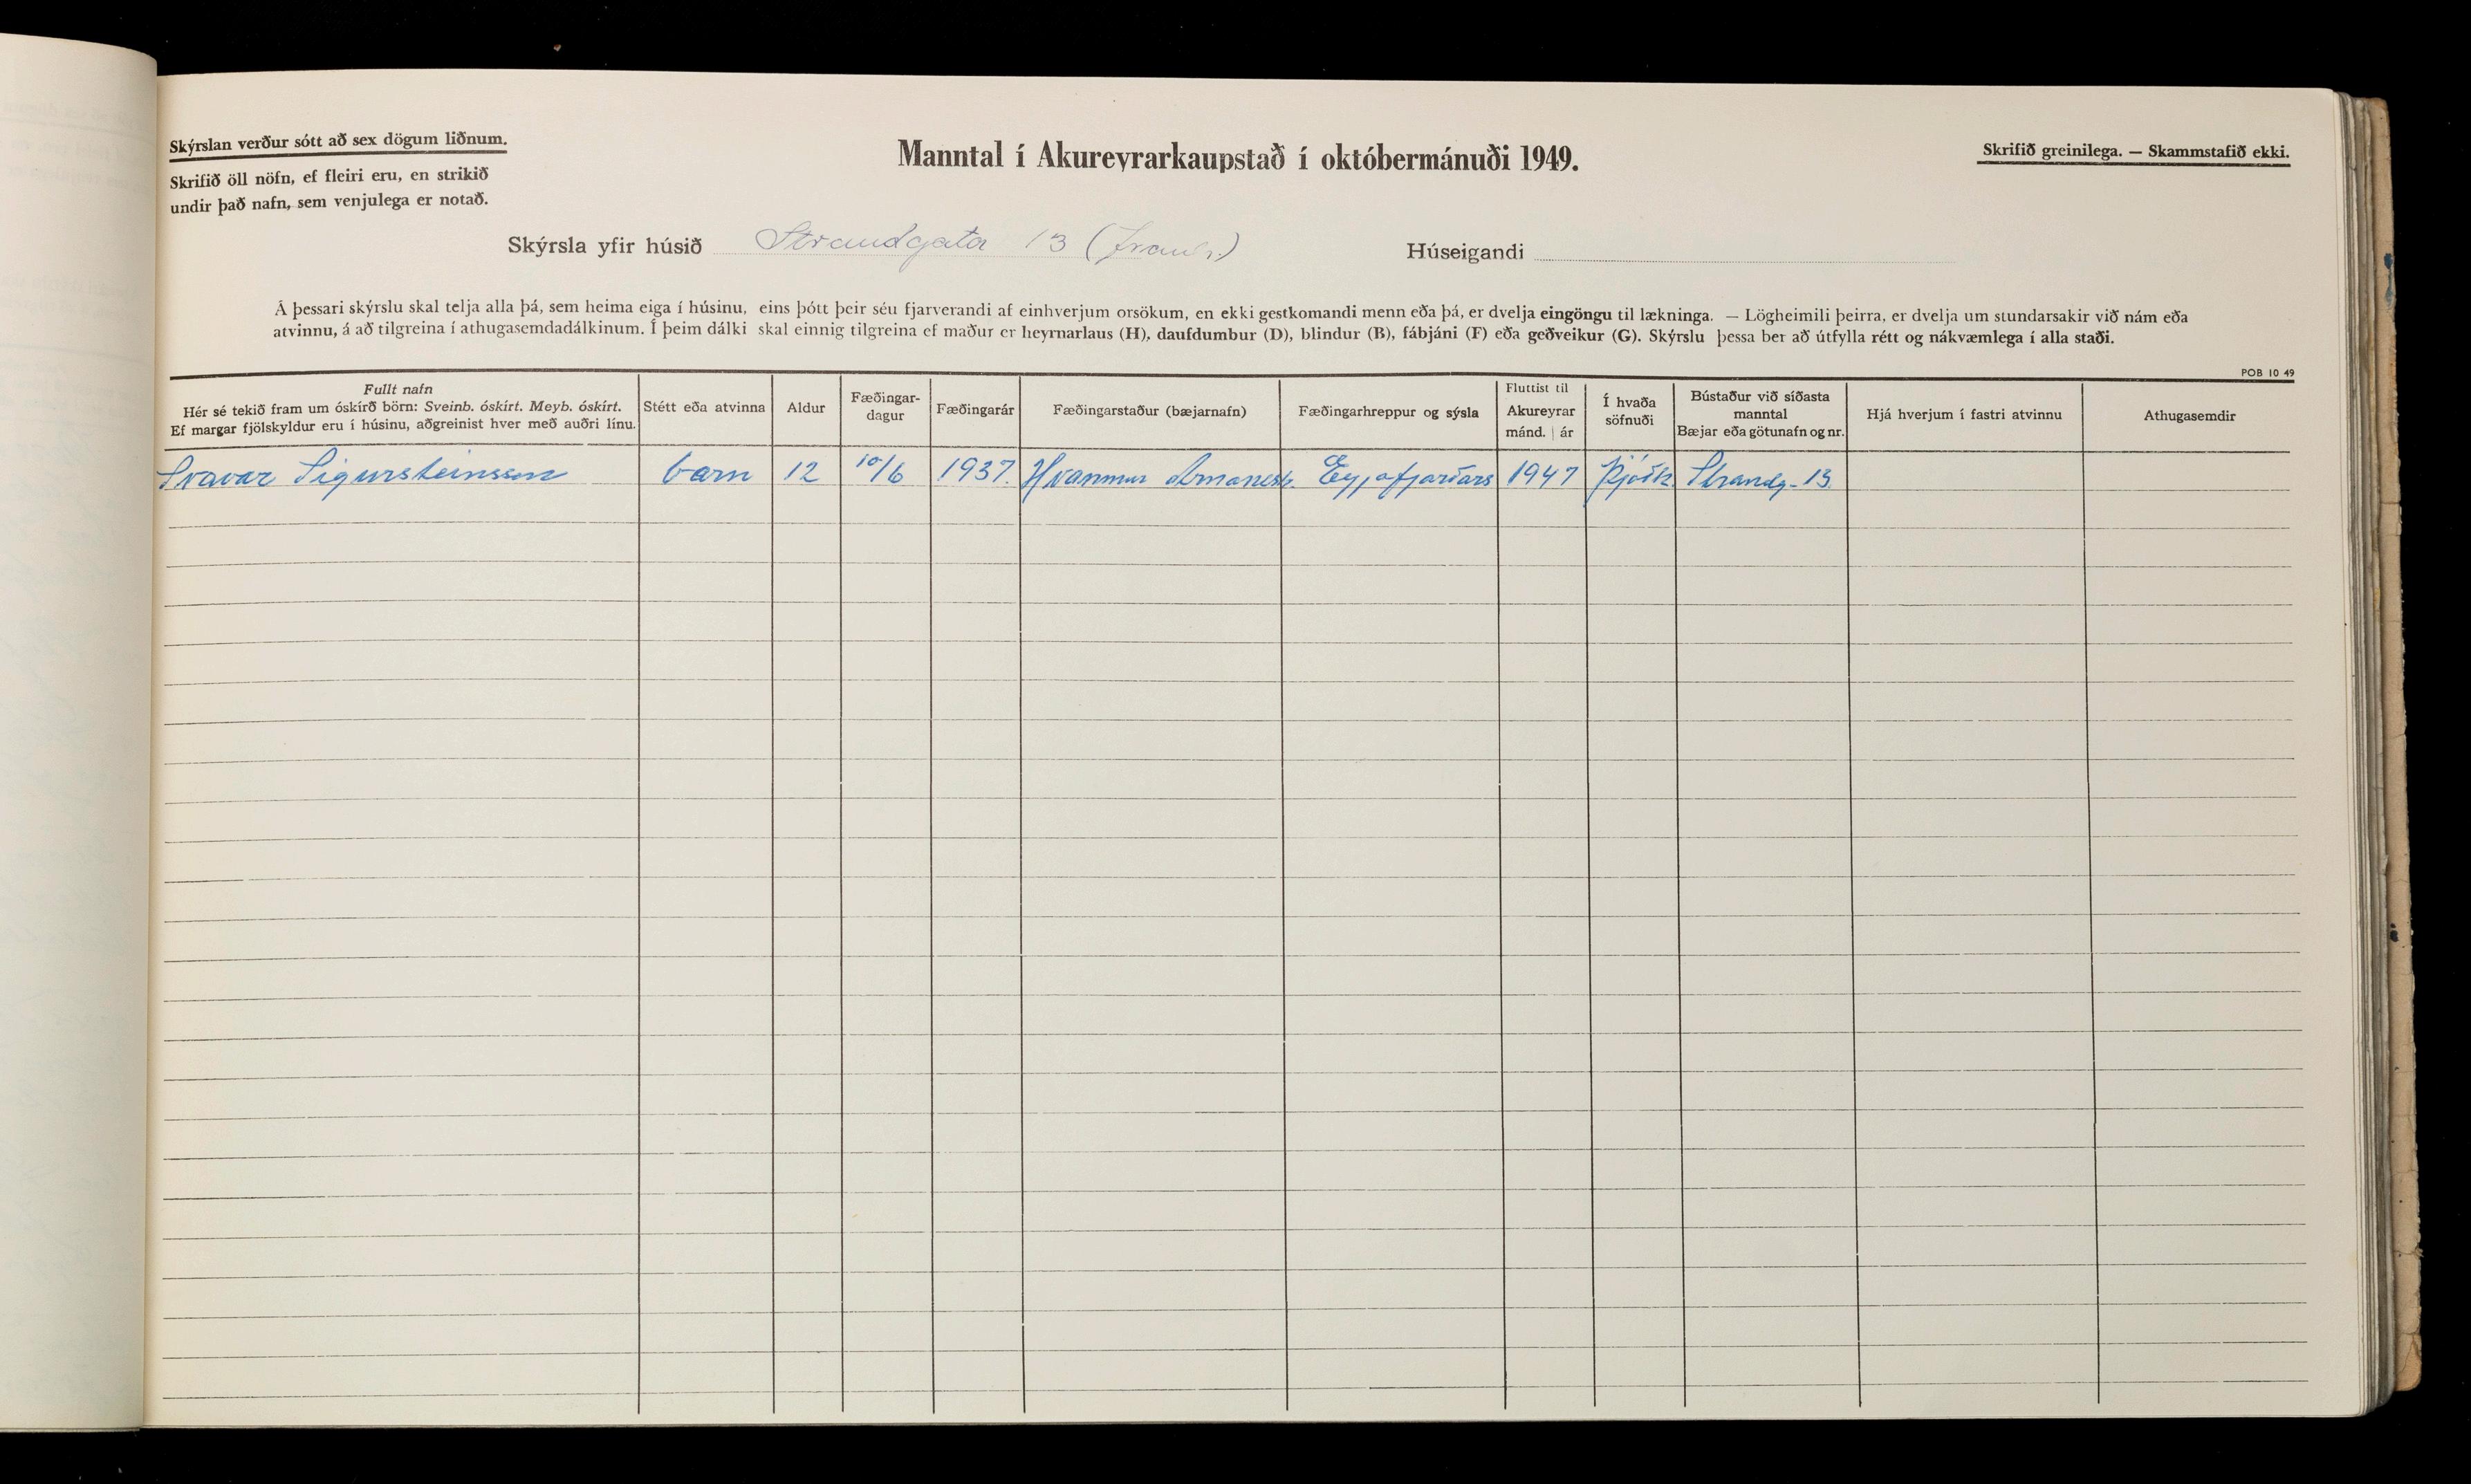 Skýrslan verður sótt að sex dögum liðnum.
Skrifið öll nöfn, ef fleiri eru, en strikið
undir það nafn, sem venjulega er notað.
Manntal í Akureyrarkaupstað í októbermánuði 1949.
Skrifið greinilega. — Skammstafið ekki.
Skýrsla yfir húsið Strandgata 13 (framh.)
Húseigandi
Á þessari skýrslu skal telja alla þá, sem heima eiga í húsinu, eins þótt þeir séu fjarverandi af einhverjum orsökum, en ekki gestkomandi menn eða þá, er dvelja eingöngu til lækninga. — Lögheimili þeirra, er dvelja um stundarsakir við nám eða
atvinnu, á að tilgreina í athugasemdadálkinum. Í þeim dálki skal einnig tilgreina ef maður er heyrnarlaus (H), daufdumbur (D), blindur (B), fábjáni (F) eða geðveikur (G). Skýrslu þessa ber að útfylla rétt og nákvæmlega í alla staði.
POB 10 49
Fullt nafn
Hér sé tekið fram um óskírð börn: Sveinb. óskírt. Meyb. óskírt.
Ef margar fjölskyldur eru í húsinu, aðgreinist hver með auðri línu.
Stétt eða atvinna
Aldur
Fæðingar-
dagur
Fæðingarár
Fæðingarstaður (bæjarnafn)
Fæðingarhreppur og sýsla
Fluttist til
Akureyrar
mánd. | ár
Í hvaða
söfnuði
Bústaður við síðasta
manntal
Bæjar eða götunafn og nr.
Hjá hverjum í fastri atvinnu
Athugasemdir
Svavar Sigursteinsson barn 12 10/6 1937. Hvammur Arnanesh. Eyjafjarðars 1947 Þjóðk. Strandg. 13.